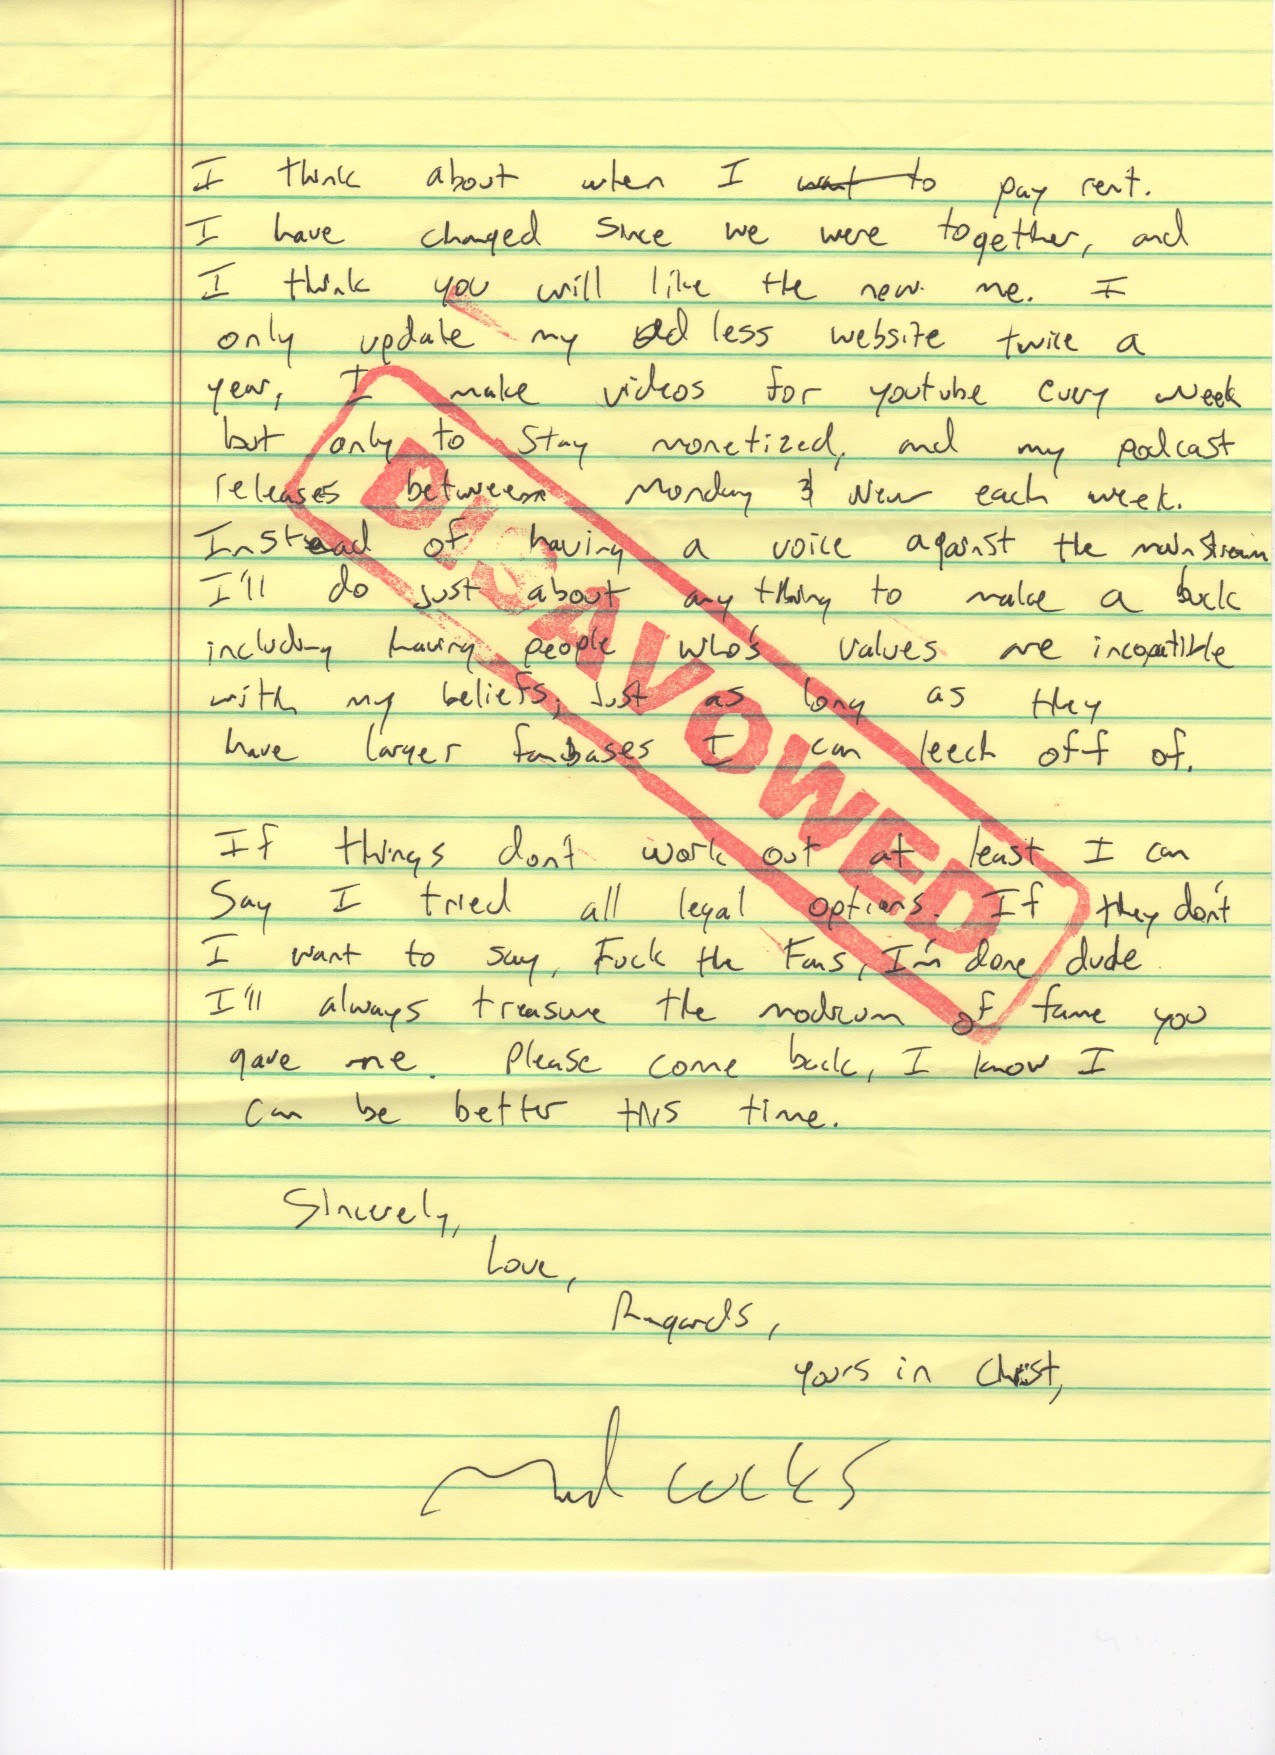 I think about when I want to pay rent.
I have changed since we were together, and
I think you will like the new me. I
only update my less website twice a
year, I make videos for youtube every week
but only to stay monetized, and my podcast
releases between Monday & Never each week.
Instead of having a voice against the mainstream
I'll do just about anything to make a buck
including having people who's values are incopatible
with my beliefs; Just as long as they
have larger fanbases I can leech off of.
If things don't work out at least I can
Say I tried all legal options. If they don't
I want to say, Fuck the Fans, I'm done dude
I'll always treasure the modicum of fame you
gave me. Please come back, I know I
can be better this time.
Sincerely,
Love,
Regards,
yours in Christ,
cucks
DISAVOWED